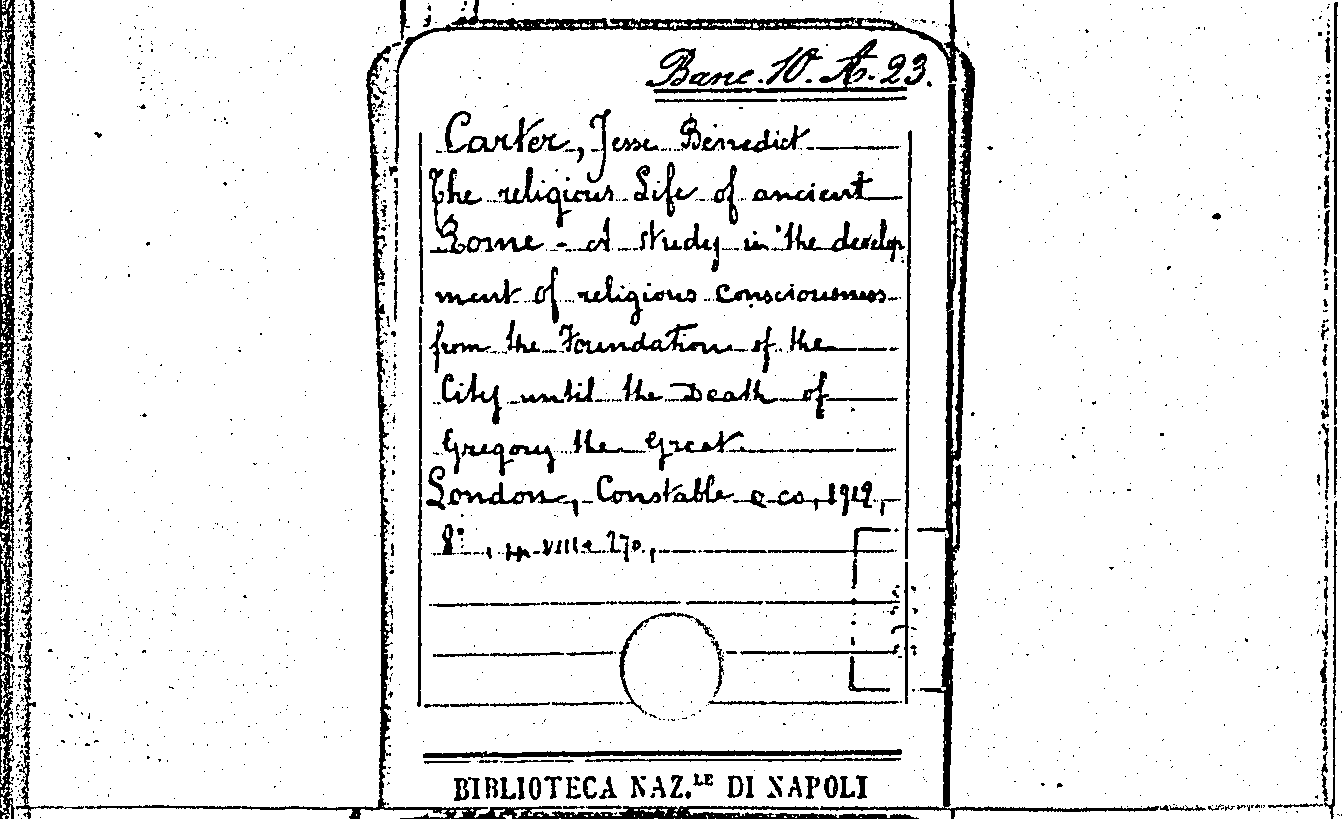 Banc. 10. A. 23.
Carter, Jesse Benedict
The religious Life of ancient
Rome - A study in the develop
ment of religious consciousness
from the Foundation of the
City until the Death of
Gregory the Great
London, Constable e co, 1912,
8°, pp. VIII e 270,
BIBLIOTECA NAZ.LE DI NAPOLI